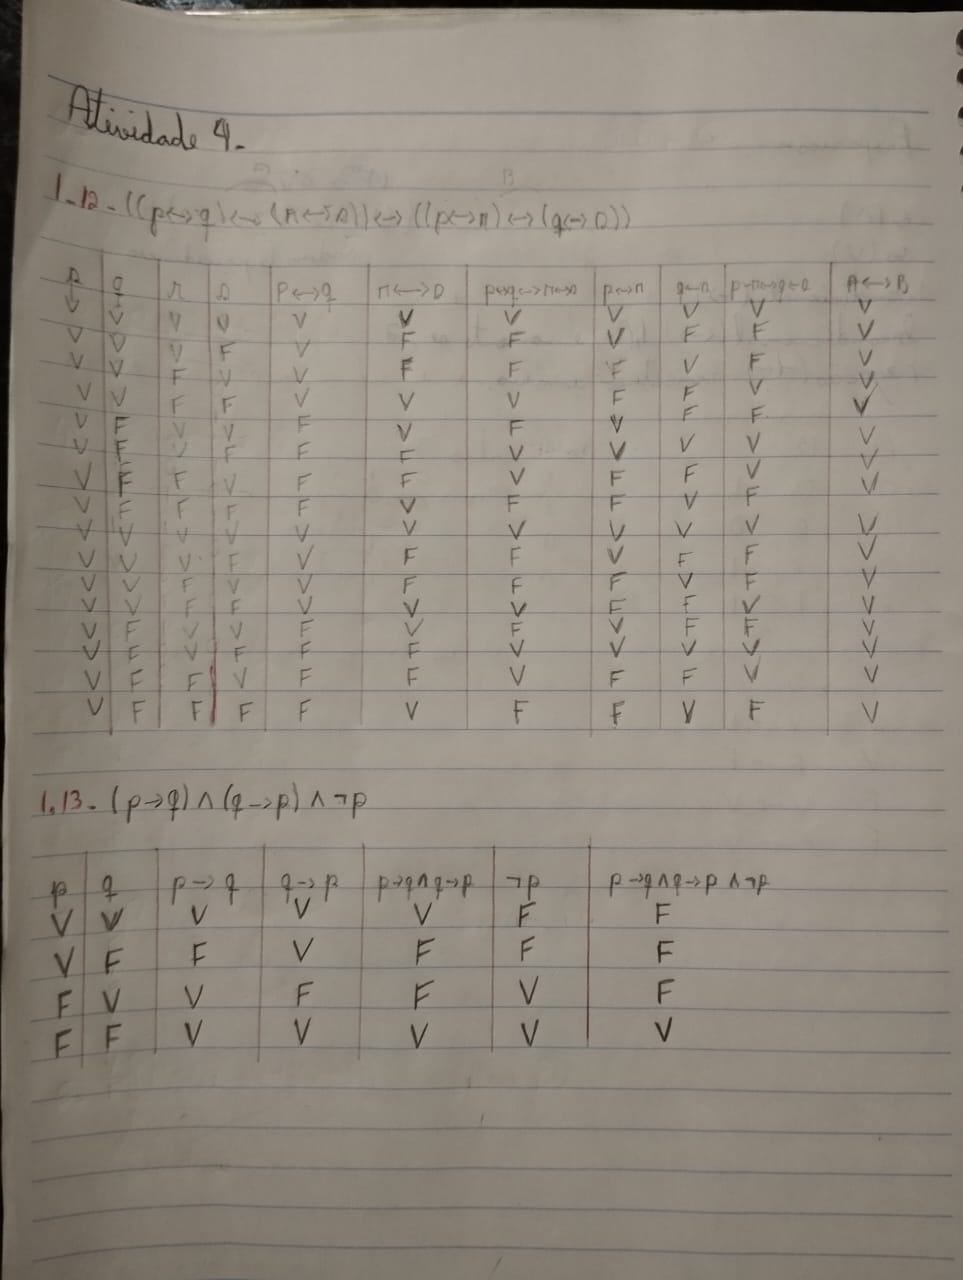 Atividade 4.
B
1.12- ((p↔q)↔(r↔s))↔((p↔r)↔(q↔s))
p q r s p↔q r↔s p↔q↔r↔s p↔r q↔s p↔r↔q↔s A↔B
V V V V V V V V V V V
V V V F V F F V F F V
V V F V V F F F V F V
V V F F V V V F F V V
V F V V F V F V F F V
V F V F F F V V V V V
V F F V F F V F F V V
V F F F F V F F V F V
V V V V V V V V V V V
V V V F V F F V F F V
V V F V V F F F V F V
V V F F V V V F F V V
V F V V F V F V F F V
V F V F F F V V V V V
V F F V F F V F F V V
V F F F F V F F V F V
1.13- (p→q)∧(q→p)∧¬p
p q p→q q→p p→q∧q→p ¬p p→q∧q→p∧¬p
V V V V V F F
V F F V F F F
F V V F F V F
F F V V V V V